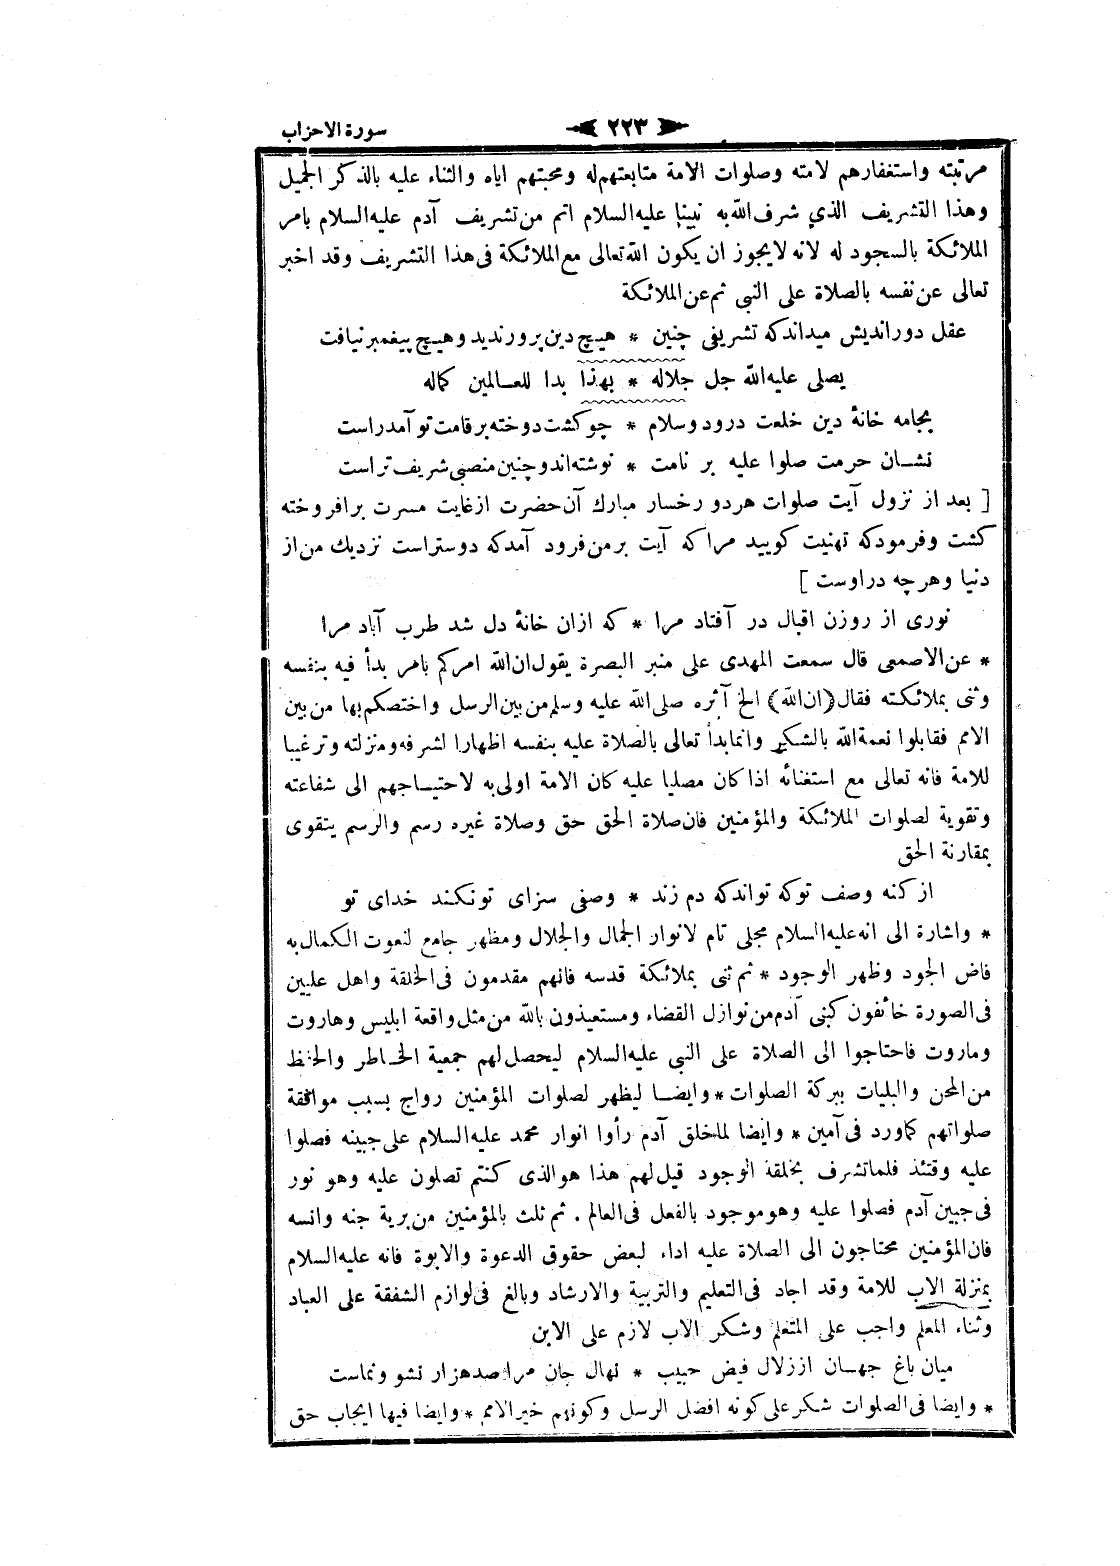 سورة الاحزاب ٢٢٣
مرتبته واستغفارهم لامته وصلوات الامة متابعتهم له ومحبتهم اياه والثناء عليه بالذكر الجميل
وهذا التشريف الذى شرف الله به نبينا عليه السلام اتم من تشريف آدم عليه السلام بامر
الملائكة بالسجود له لانه لايجوز ان يكون الله تعالى مع الملائكة فى هذا التشريف وقد اخبر
تعالى عن نفسه بالصلاة على النبى ثم عن الملائكة
عقل دورانديش ميداندكه تشريفى چنين * هيچ دين پرور نديد وهيچ پيغمبر نيافت
يصلى عليه الله جل جلاله * بهذا بدا للعالمين كماله
بجامه خانۀ دين خلعت درود وسلام * چوكشت دوخته برقامت تو آمد راست
نشان حرمت صلوا عليه بر نامت * نوشته اند و چنين منصبى شريف تراست
[ بعد از نزول آيت صلوات هردو رخسار مبارك آن حضرت ازغايت مسرت برافروخته
كشت وفرمودكه تهنيت كوييد مراكه آيت برمن فرود آمدكه دوستراست نزديك من از
دنيا وهرچه دراوست ]
نورى از روزن اقبال در آفتاد مرا * كه ازان خانۀ دل شد طرب آباد مرا
* عن الاصمعى قال سمعت المهدى على منبر البصرة يقول ان الله امركم بامر بدأ فيه بنفسه
وثنى بملائكته فقال (ان الله) الخ آثره صلى الله عليه وسلم من بين الرسل واختصكم بها من بين
الامم فقابلوا نعمة الله بالشكر وانما بدأ تعالى بالصلاة عليه بنفسه اظهارا لشرفه ومنزلته وترغيبا
للامة فانه تعالى مع استغنائه اذا كان مصليا عليه كان الامة اولى به لاحتياجهم الى شفاعته
وتقوية لصلوات الملائكة والمؤمنين فان صلاة الحق حق وصلاة غيره رسم والرسم يتقوى
بمقارنة الحق
از كنه وصف توكه تواندكه دم زند * وصفى سزاى تو نكند خداى تو
* واشارة الى انه عليه السلام مجلى تام لانوار الجمال والجلال ومظهر جامع لنعوت الكمال به
فاض الجود وظهر الوجود * ثم ثنى بملائكة قدسه فانهم مقدمون فى الخلقة واهل عليين
فى الصورة خائفون كبنى آدم من نوازل القضاء ومستعيذون بالله من مثل واقعة ابليس وهاروت
وماروت فاحتاجوا الى الصلاة على النبى عليه السلام ليحصل لهم جمعية الخاطر والحفظ
من المحن والبليات ببركة الصلوات * وايضا ليظهر لصلوات المؤمنين رواج بسبب موافقة
صلواتهم كما ورد فى آمين * وايضا لما خلق آدم رأوا انوار محمد عليه السلام على جبينه فصلوا
عليه وقتئذ فلما تشرف بخلقة الوجود قيل لهم هذا هو الذى كنتم تصلون عليه وهو نور
فى جبين آدم فصلوا عليه وهو موجود بالفعل فى العالم . ثم ثلث بالمؤمنين من برية جنه وانسه
فان المؤمنين محتاجون الى الصلاة عليه اداء لبعض حقوق الدعوة والابوة فانه عليه السلام
بمنزلة الاب للامة وقد اجاد فى التعليم والتربية والارشاد وبالغ فى لوازم الشفقة على العباد
وثناء المعلم واجب على المتعلم وشكر الاب لازم على الابن
ميان باغ جهان اززلال فيض حبيب * نهال جان مرا صدهزار نشو ونماست
* وايضا فى الصلوات شكر على كونه افضل الرسل وكونهم خير الامم * وايضا فيها ايجاب حق